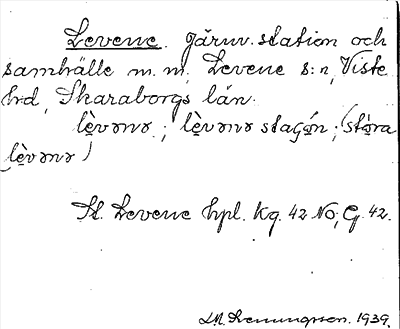 Levene. Järnv. station och
samhälle m. m. Levene s:n, Viste
hrd, Skaraborgs län.
lèvənə ; lèvənə staʃón ; (stòra
lèvənə)
St. Levene hpl. Kg. 42 NO; G. 42.
1939.